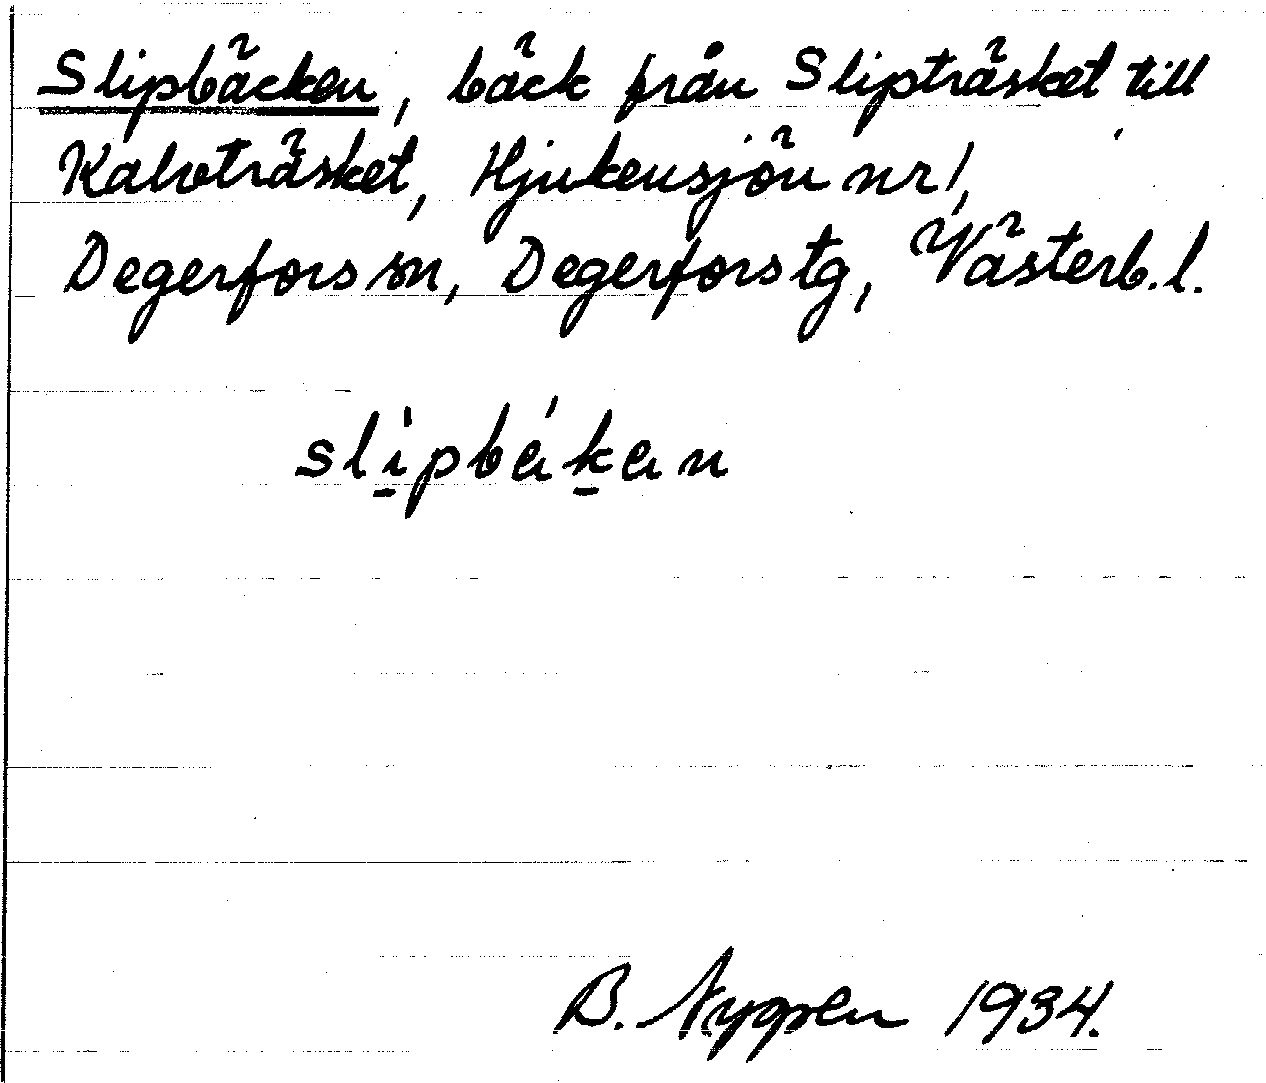 Slipbäcken, bäck från Slipträsket till
Kalvträsket, Hjukensjön nr 1,
Degerfors sn, Degerfors tg, Västerb. l.
slìpbákan
B. Nygren 1934.